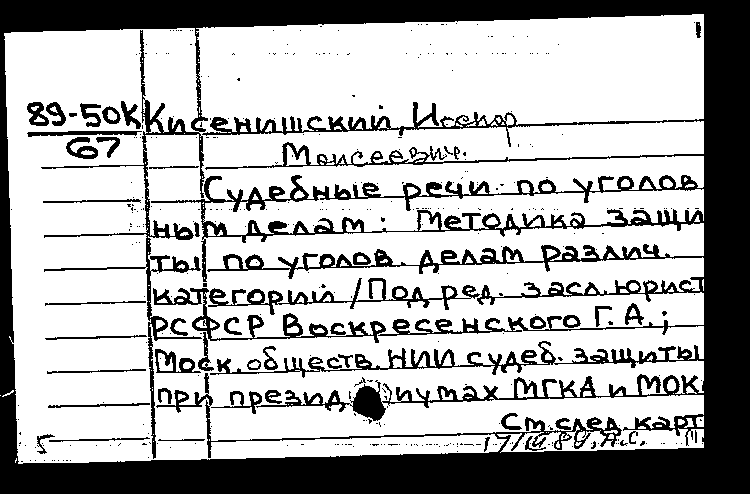 89-50К Кисенишский, Исанор
67
Моисеевич.
Судебные речи по уголов
ным делам: Методика защи
ты по уголов. делам различ.
категорий /Под ред. засл. юрист
РСФСР Воскресенского Г.А.;
Моск. обществ. НИИ судеб. защиты
при президиумах МГКА и МОК
См. след. карт
5